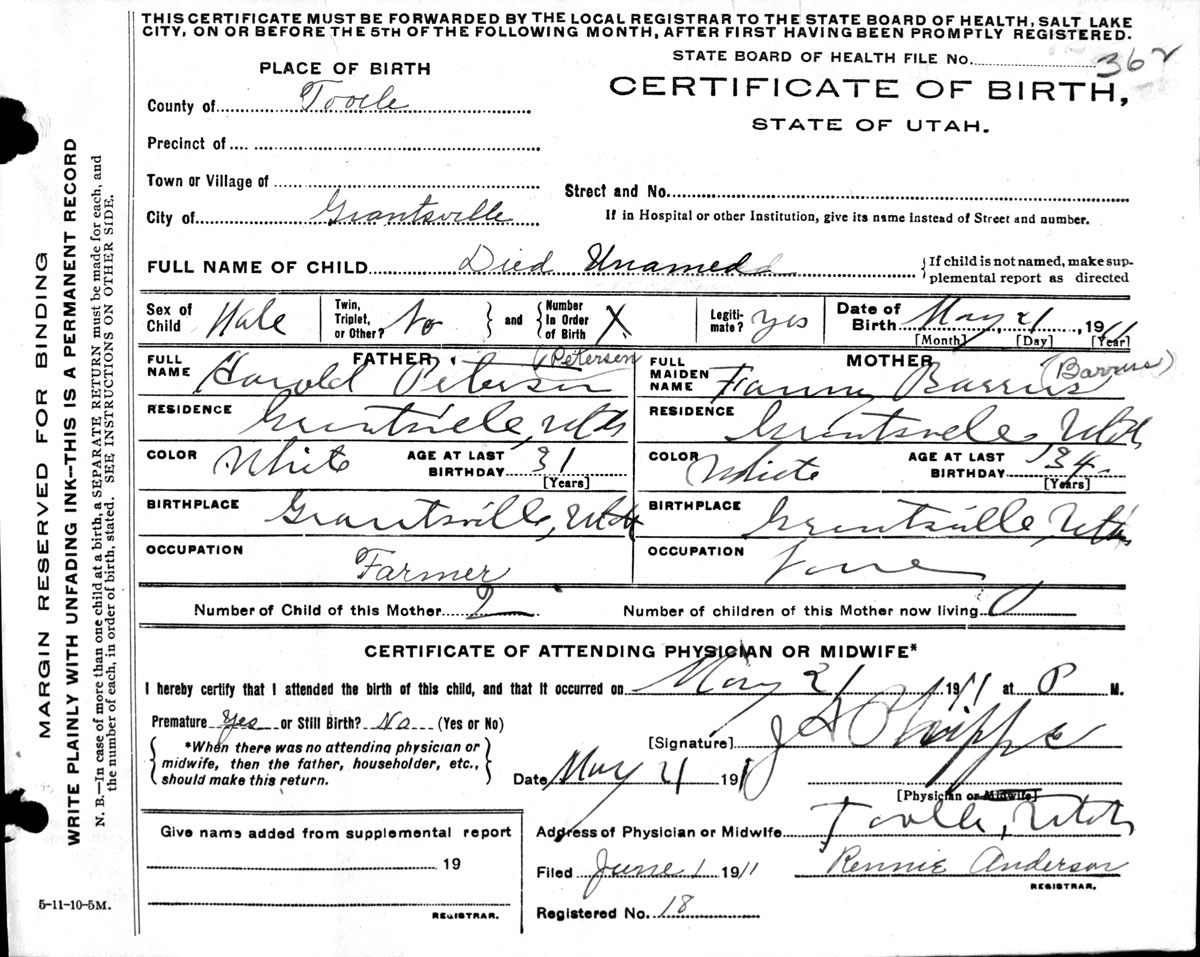 THIS CERTIFICATE MUST BE FORWARDED BY THE LOCAL REGISTRAR TO THE STATE BOARD OF HEALTH, SALT LAKE
CITY, ON OR BEFORE THE 5TH OF THE FOLLOWING MONTH, AFTER FIRST HAVING BEEN PROMPTLY REGISTERED.
STATE BOARD OF HEALTH FILE No. 362
PLACE OF BIRTH
CERTIFICATE OF BIRTH,
STATE OF UTAH.
County of Tooele
Precinct of
Town or Village of
Street and No.
City of Grantsville
If in Hospital or other Institution, give its name instead of Street and number.
FULL NAME OF CHILD Died Unamed
If child is not named, make sup-
plemental report as directed
Sex of Child Male
Twin, Triplet, or Other? No
and
Number In Order of Birth X
Legiti-mate? Yes
Date of Birth May 21, 1911
[Month] [Day] [Year]
FATHER (Petersen
FULL NAME Harold Peterson
MOTHER (Barrus)
FULL MAIDEN NAME Fanny Barrus
RESIDENCE Grantsville, Utah
RESIDENCE Grantsville Utah
COLOR White AGE AT LAST BIRTHDAY 31 [Years]
COLOR White AGE AT LAST BIRTHDAY 34 [Years]
BIRTHPLACE Grantsville, Utah
BIRTHPLACE Grantsville, Utah
OCCUPATION Farmer
OCCUPATION None
Number of Child of this Mother 2
Number of children of this Mother now living 0
CERTIFICATE OF ATTENDING PHYSICIAN OR MIDWIFE*
I hereby certify that I attended the birth of this child, and that it occurred on May 21 1911 at P M.
Premature Yes or Still Birth? No (Yes or No)
*When there was no attending physician or
midwife, then the father, householder, etc.,
should make this return.
[Signature] J A Phipps
Date May 21 191
[Physician or Midwife]
Address of Physician or Midwife Tooele, Utah
Give name added from supplemental report
19
REGISTRAR.
Filed June 1 1911
Rennie Anderson
REGISTRAR.
Registered No. 18
5-11-10-5M.
MARGIN RESERVED FOR BINDING
WRITE PLAINLY WITH UNFADING INK—THIS IS A PERMANENT RECORD
N. B.—In case of more than one child at a birth, a SEPARATE RETURN must be made for each, and
the number of each, in order of birth, stated. SEE INSTRUCTIONS ON OTHER SIDE.